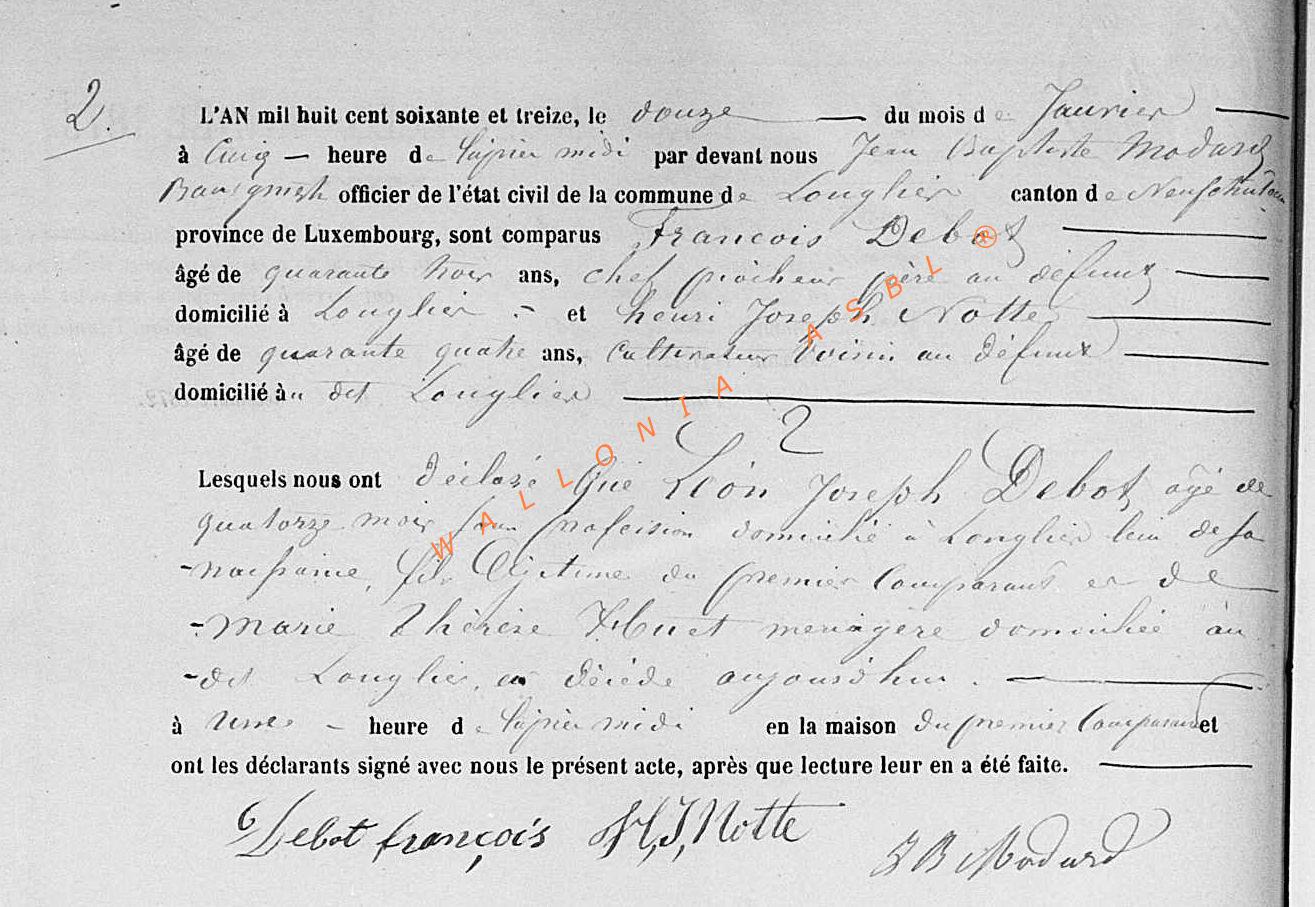 2.
L'AN mil huit cent soixante et treize, le douze du mois de Janvier
à Cinq — heure de l'après midi par devant nous Jean Baptiste Modard
Bourgmestre officier de l'état civil de la commune de Longlier canton de Neufchateau
province de Luxembourg, sont comparus François Debot
âgé de quarante trois ans, chef piocheur père au défunt
domicilié à Longlier et henri Joseph Notte
âgé de quarante quatre ans, Cultivateur Voisin au défunt
domicilié au dit Longlier
2
Lesquels nous ont déclaré que Léon Joseph Debot âgé de
quatorze mois sans profession domicilié à Longlier lieu de sa
naissance, fils légitime du premier Comparant et de
Marie Thérèse Huet menagère domiciliée au
dit Longlier, est décédé aujourd'hui.
à une — heure de l'après midi en la maison du premier Comparant et
ont les déclarants signé avec nous le présent acte, après que lecture leur en a été faite.
Debot françois H, J, Notte
J B Modard
WALLONIA ASBL ®